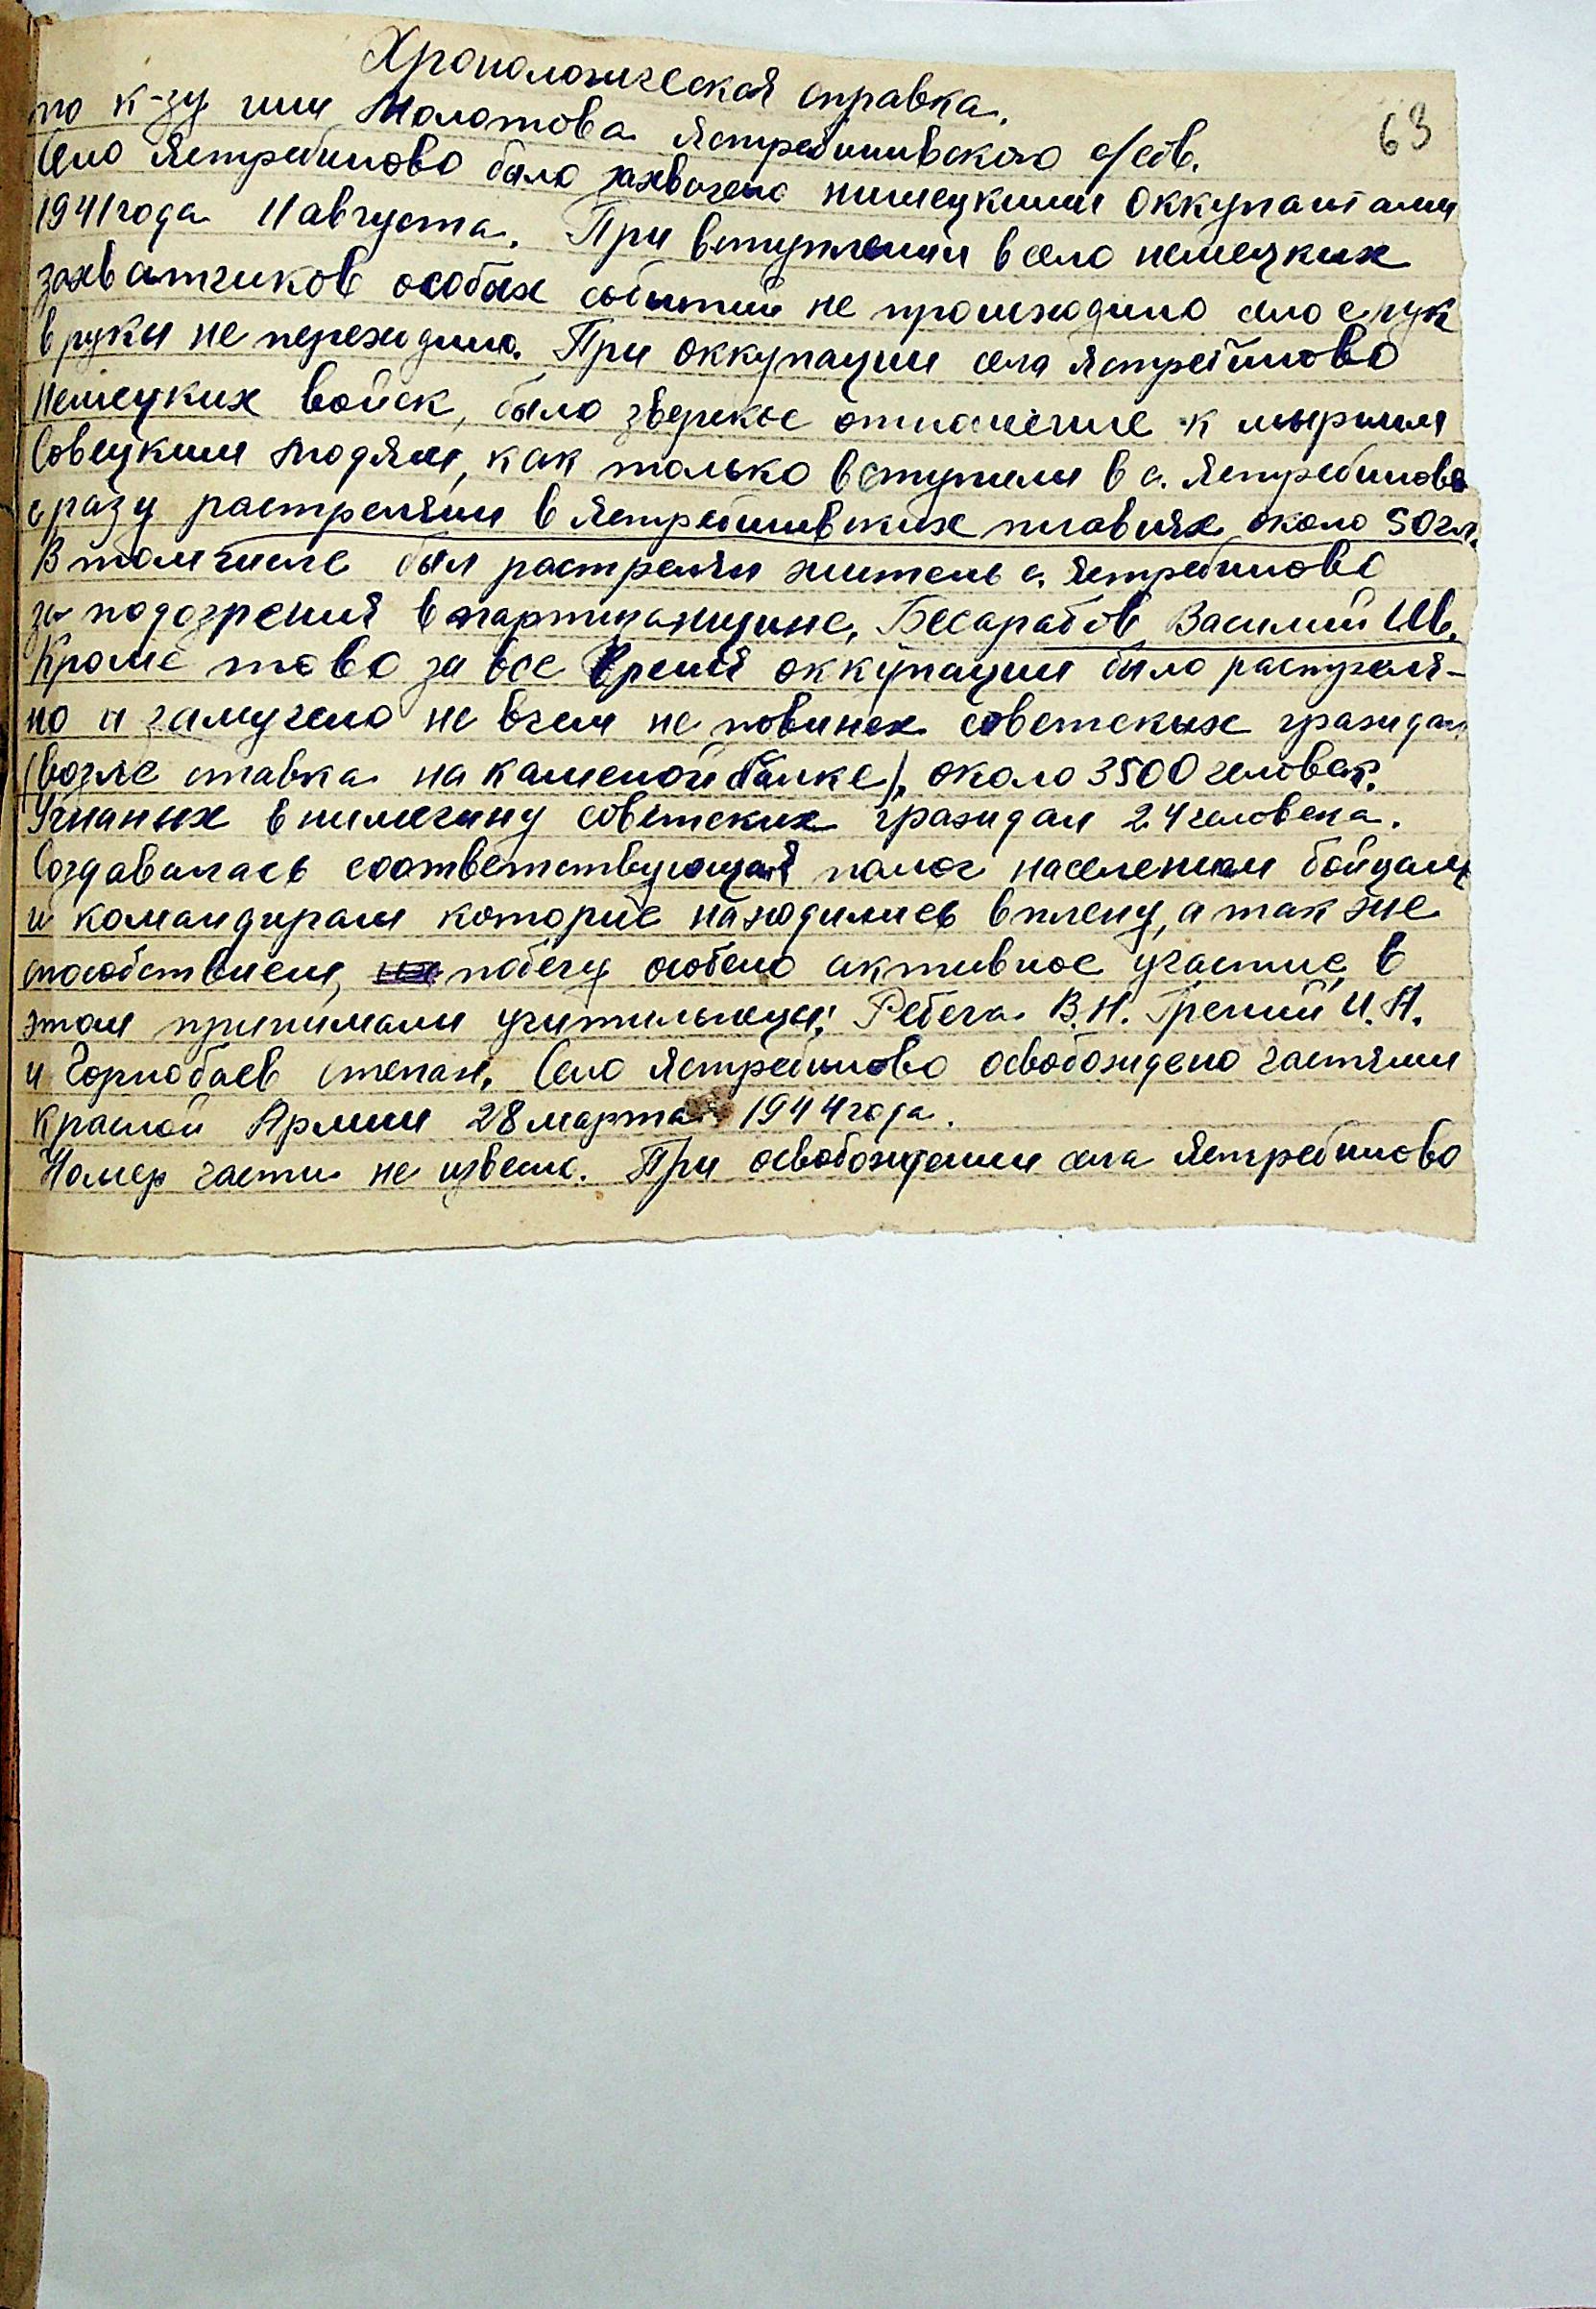 Хронологическая справка.
63
по к-зу им Молотова Ястребинивского с/сов.
Село Ястребиново было захвачено нимецкими оккупантами
1941 года 11 августа. При вступлении в село немецких
захватчиков особых событий не проиходило село с рук
в руки не переходило. При оккупации села Ястребиново
Немецких войск, было зверское отношение к мырным
Совецким людям, как только вступили в с. Ястребиново
сразу растреляли в Ястребинивских плавнях около 50 чл.
В том числе был растрелян житель с. Ястребиново
за подозрения в партизанщине, Бесарабов Василий Ив.
Кроме тово за все время оккупации было растреля-
но и замучено не в чем не повиных советских граждан
(возле ставка на каменой балке), около 3500 человек.
Угнаных в нимечину советских граждан 24 человека.
Создавалась соответствующая помоч населением бойцам
и командирам которые находились в плену, а так же
способствием, побегу особено активное участие в
этом принимали учительницы: Ребега В.Н. Грений И.А.
и Чорнобаев степан. Село Ястребиново освобождено частями
Красной Армии 28 марта 1944 года.
Номер части не извесно. При освобождении села Ястребиново